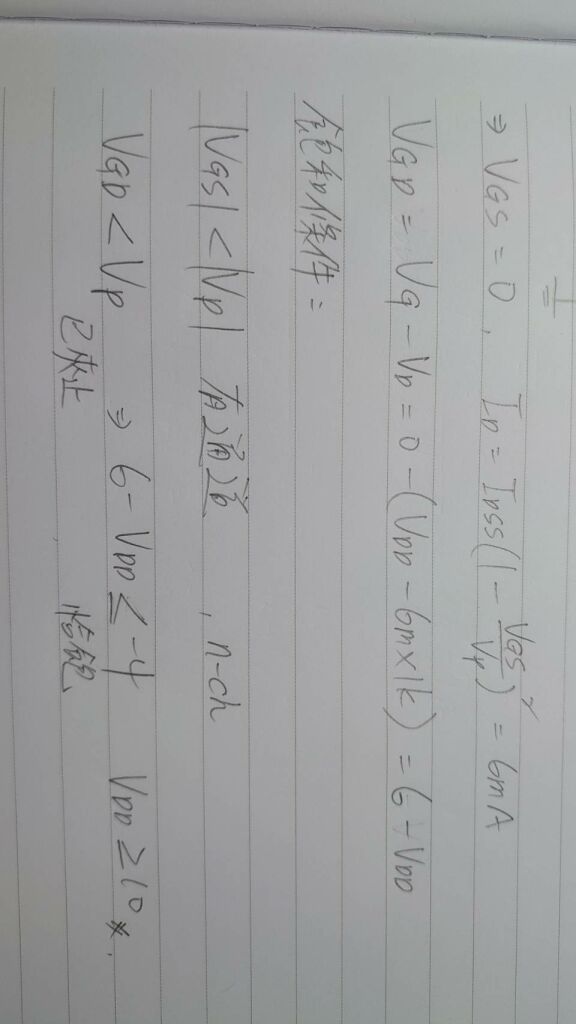 ⇒ VGS = 0 , ID = IDSS(1 - VGS/VP)² = 6mA
VGD = VG - VD = 0 - (VDD - 6m×1k) = 6 - VDD
飽和條件 =
|VGS| < |VP| 有通道 , n-ch
VGD < VP ⇒ 6 - VDD ≤ -4 VDD ≥ 10 *.
已夾止 恰飽